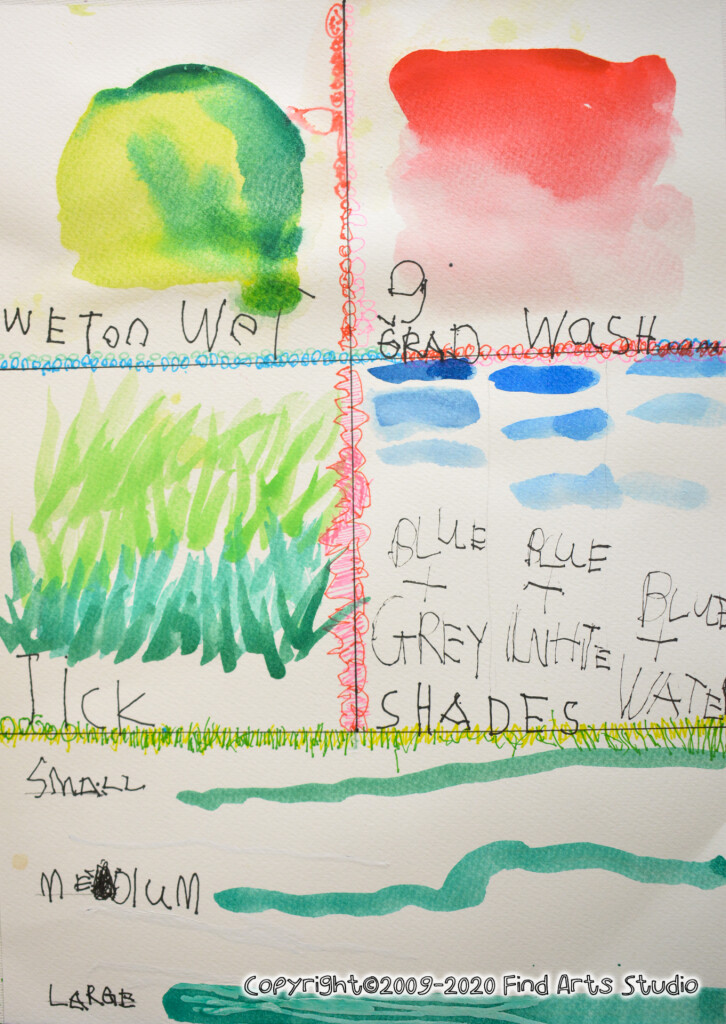 WETON WET
g
GRAD WASH
BLUE
+
GREY
BLUE
+
WHITE
BLUE
+
WATER
TICK
SHADES
SMALL
MEDIUM
LARGE
Copyright©2009-2020 Find Arts Studio